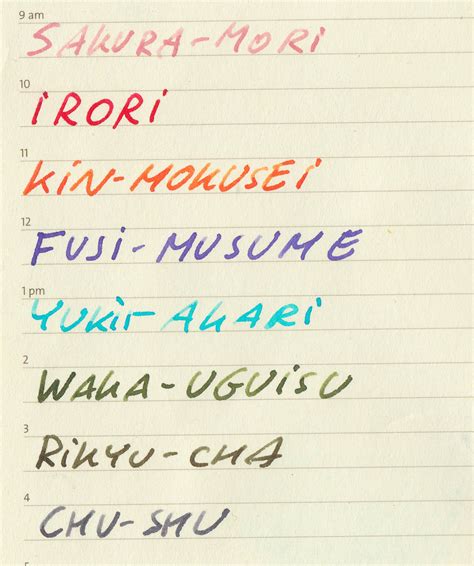 9 am
SAKURA-MORI
10
iRORi
11
KiN-MOKUSEi
12
FUSi-MUSUME
1 pm
YUKii-AKARi
2
WAKA-UGUiSU
3
RiKYU-CHA
4
CHU-SHU